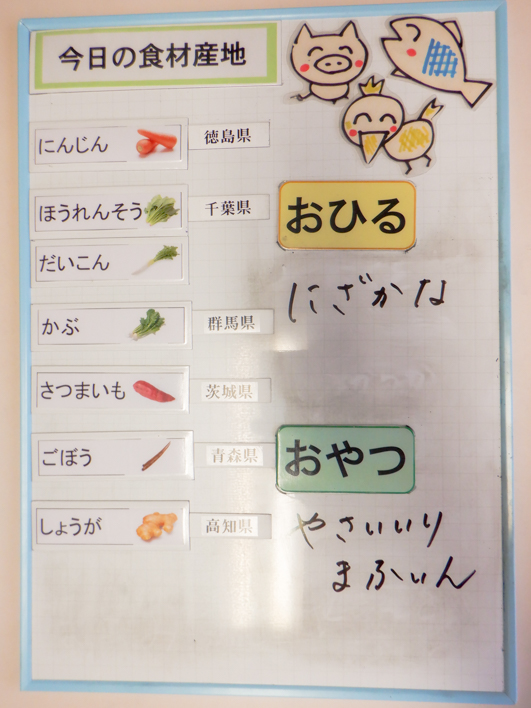 今日の食材産地
にんじん 徳島県
ほうれんそう 千葉県
だいこん
かぶ 群馬県
さつまいも 茨城県
ごぼう 青森県
しょうが 高知県
おひる
にざかな
おやつ
やさいいり
まふぃん